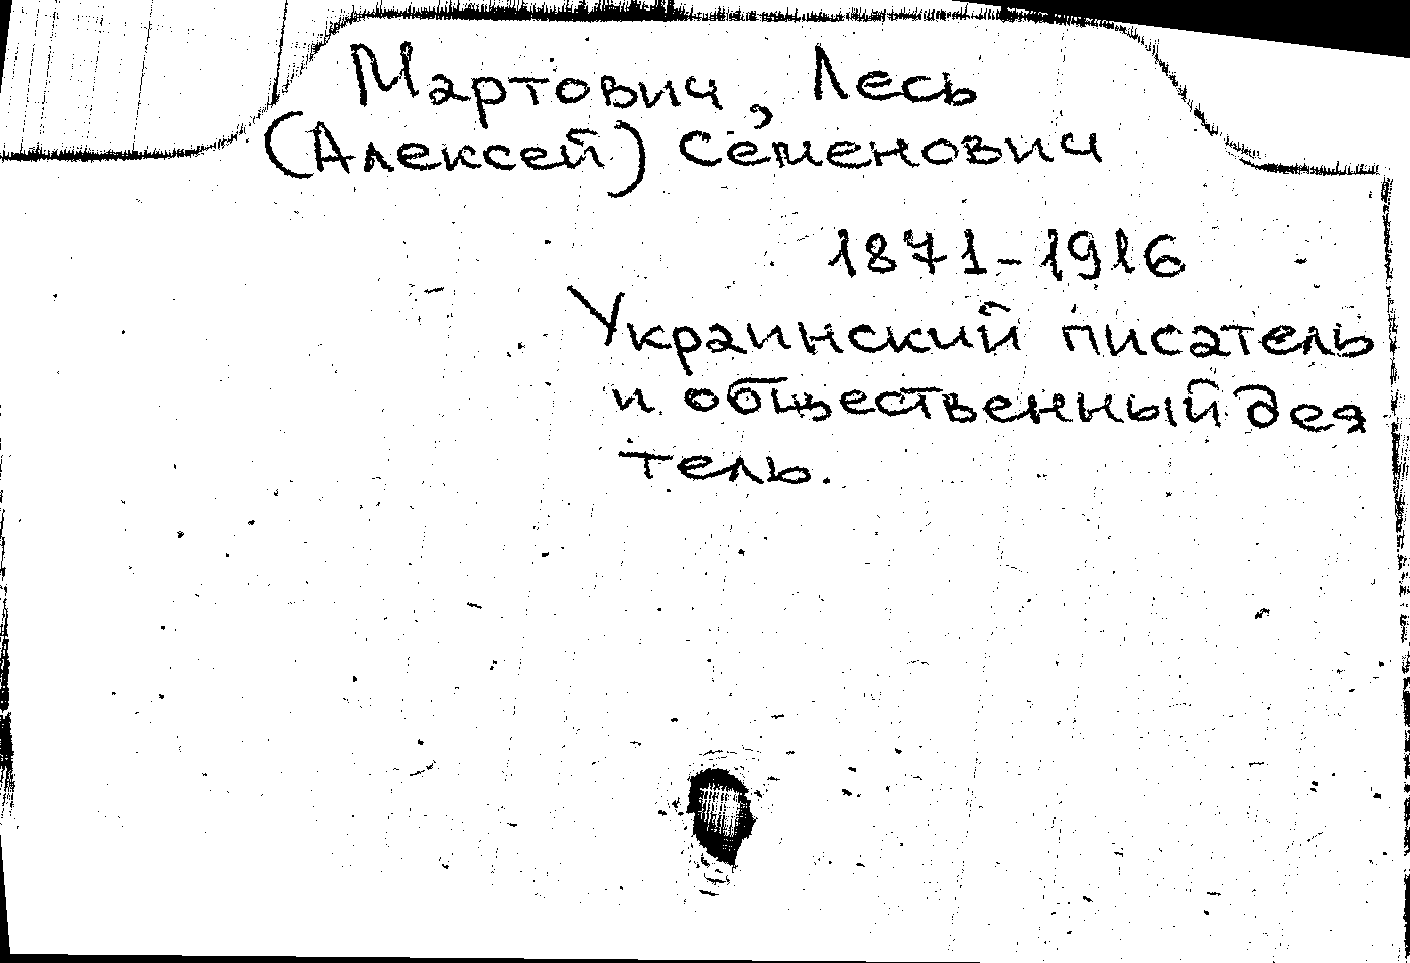 Мартович, Лесь
(Алексей) Семенович
1871-1916
Украинский писатель
и общественный дея
тель.